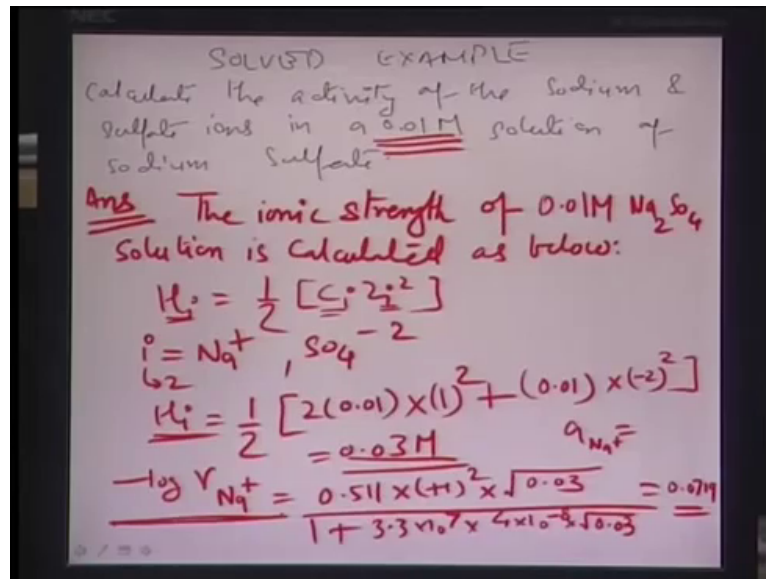 NEC
SOLVED EXAMPLE
Calculate the activity of the Sodium &
Sulfate ions in a 0.01M solution of
Sodium Sulfate
Ans The ionic strength of 0.01M Na₂SO₄
Solution is Calculated as below:
Hi = 1/2 [Ci Zi²]
i = Na⁺, SO₄⁻²
↳2
Hi = 1/2 [2(0.01) × (1)² + (0.01) × (-2)²]
= 0.03M
a Na⁺ =
-log γ Na⁺ = 0.511 × (+1)² × √0.03 / 1 + 3.3 × 10⁷ × 4 × 10⁻⁸ × √0.03 = 0.0719